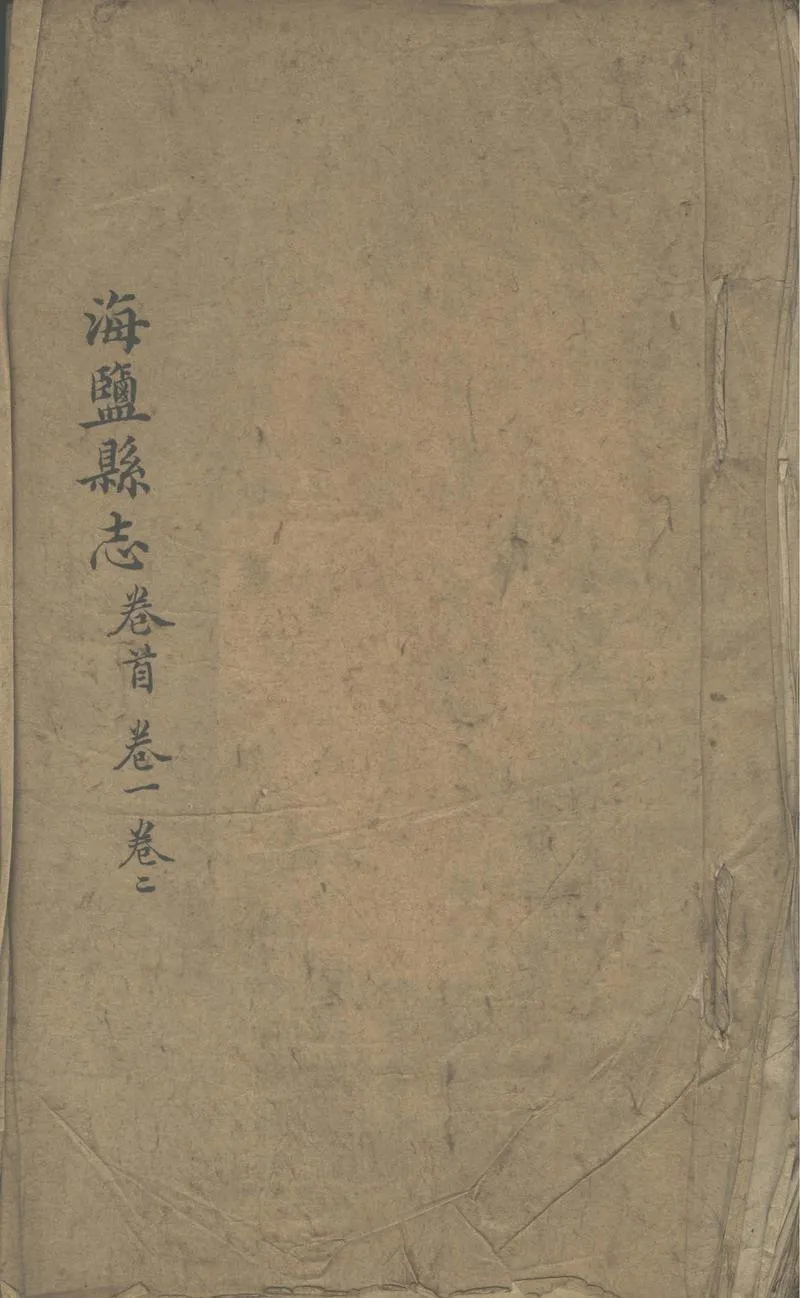 海鹽縣志卷首 卷一 卷二